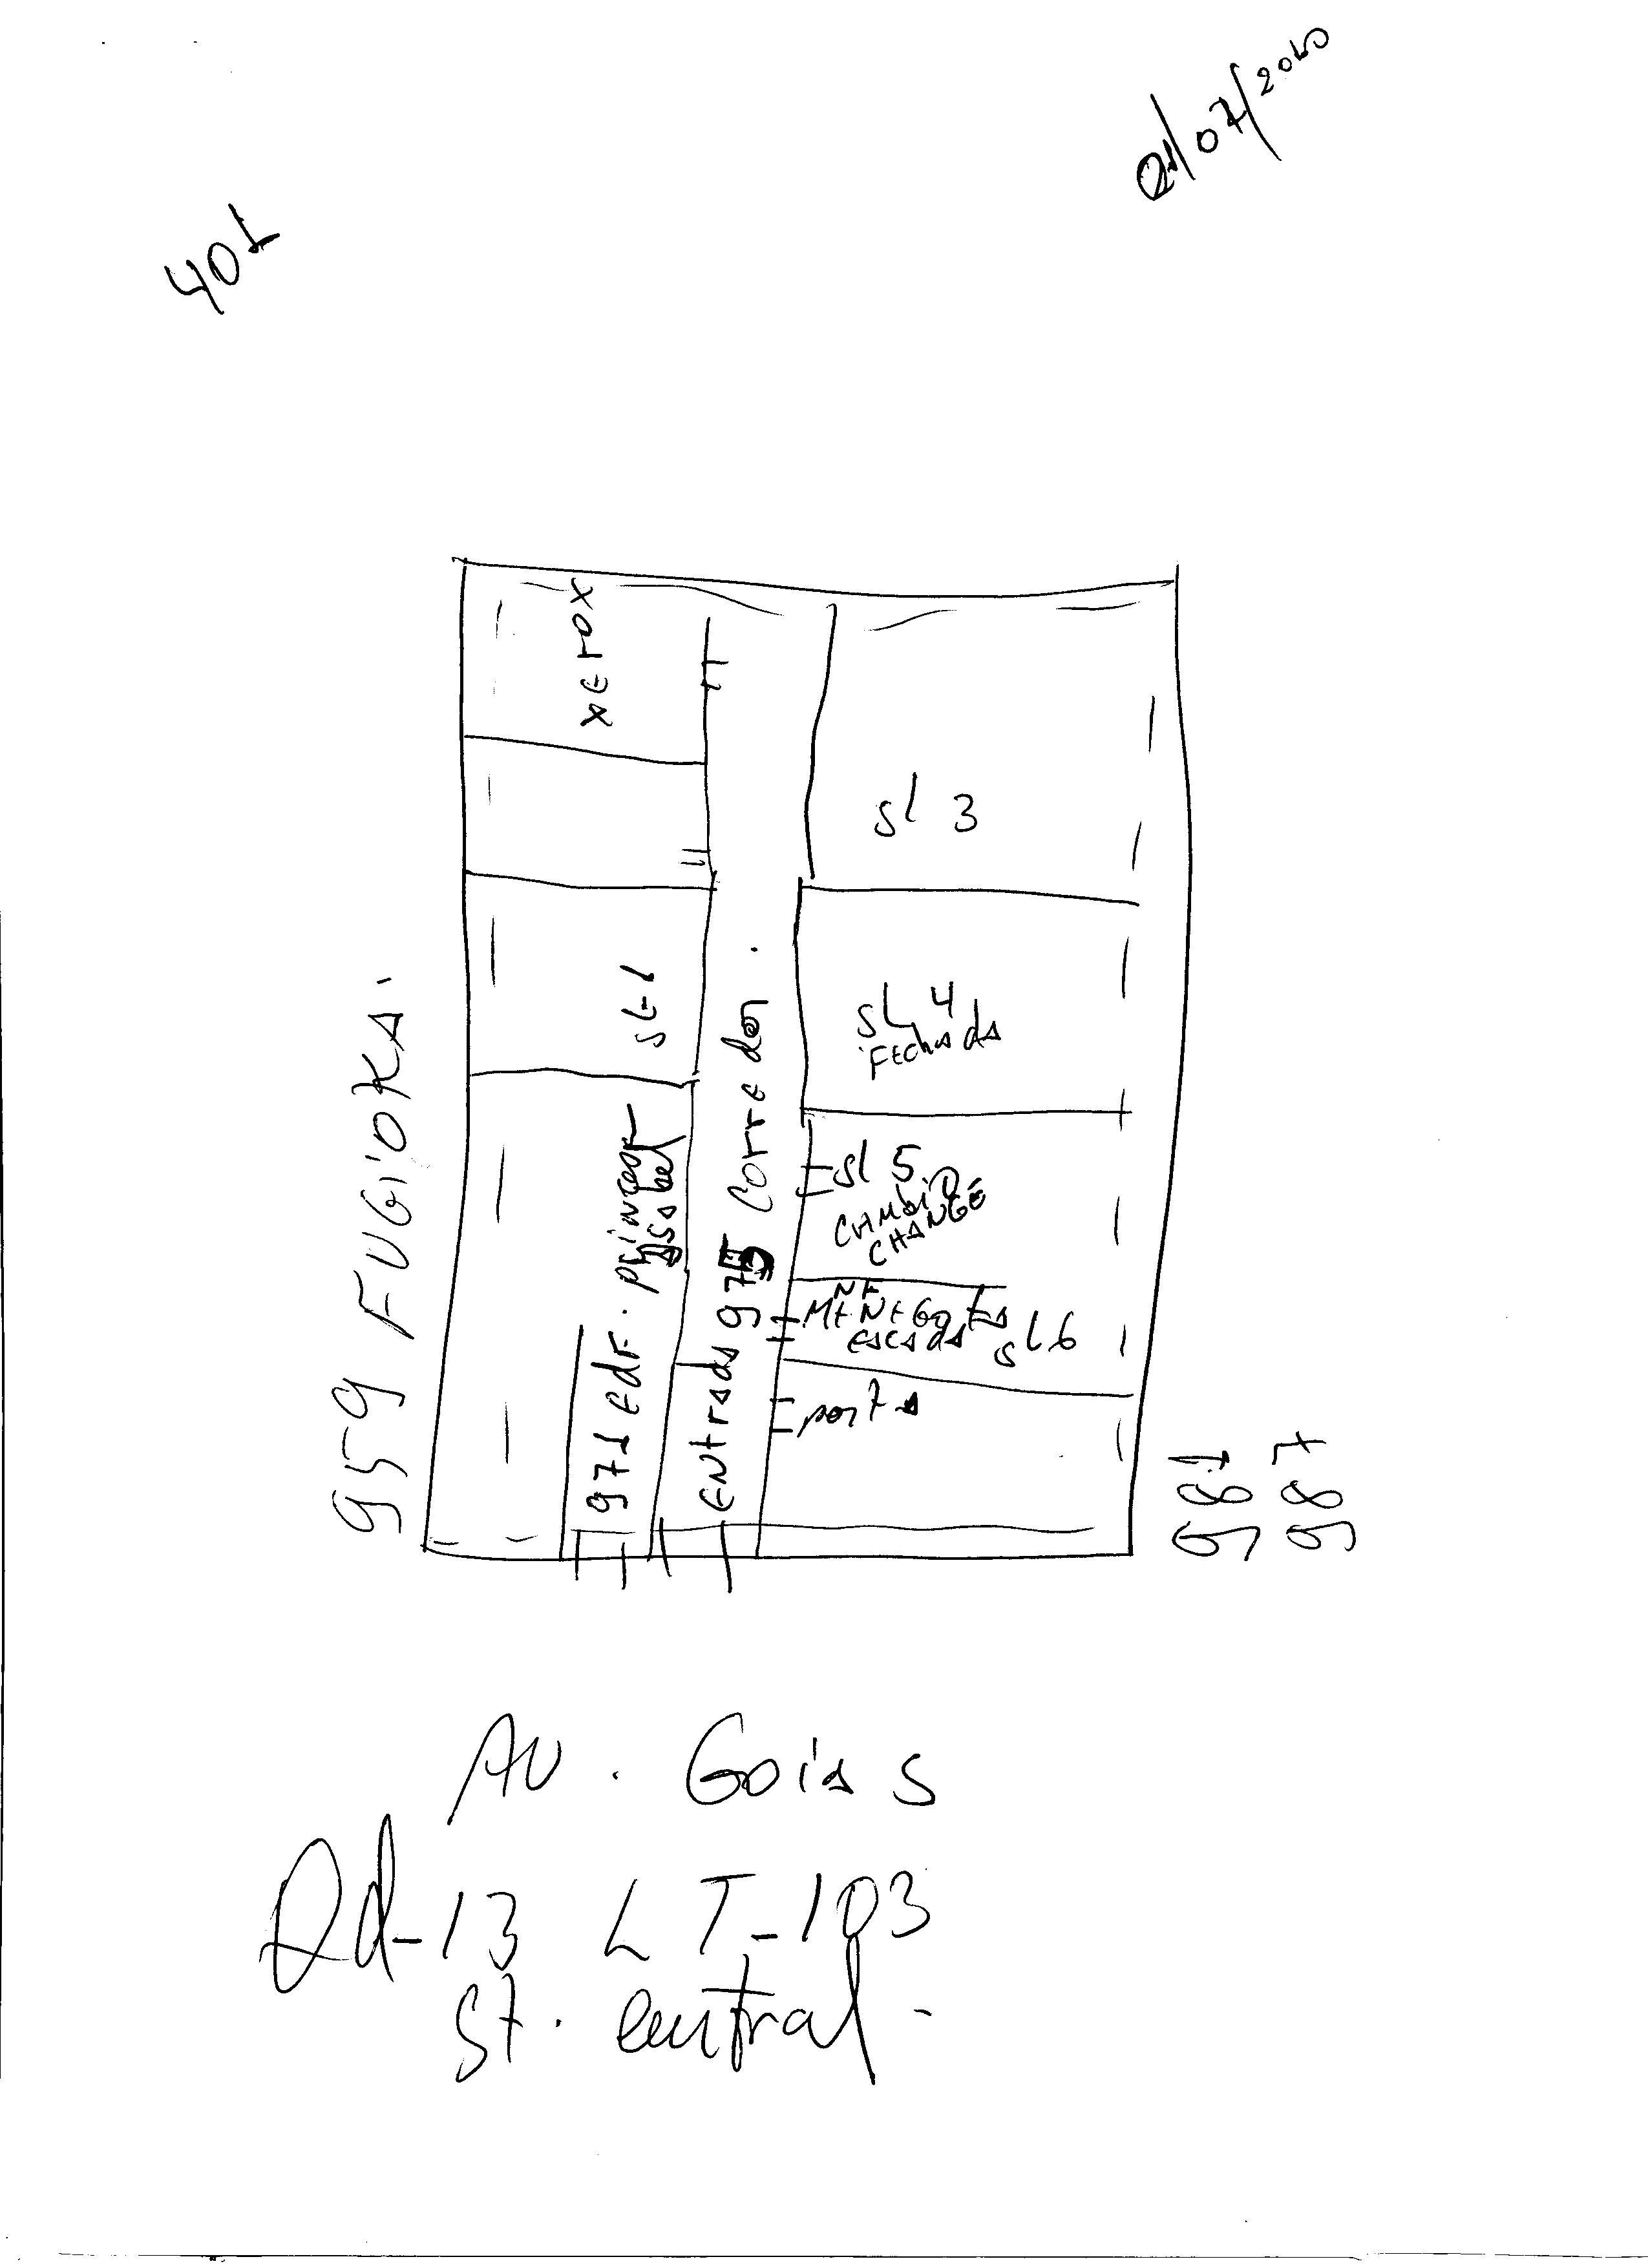 401
01/07/2010
XEroX
sl 3
sl-1
sL 4
FEchada
959 FUGiOKA.
Corredor.
sl 5
CAMbiO
CHANGE
971 Edf. princesa
Isabel
Entrada 975
escada sl6
porta
981
987
AV. Goias
Qd-13 LT-103
St. central.